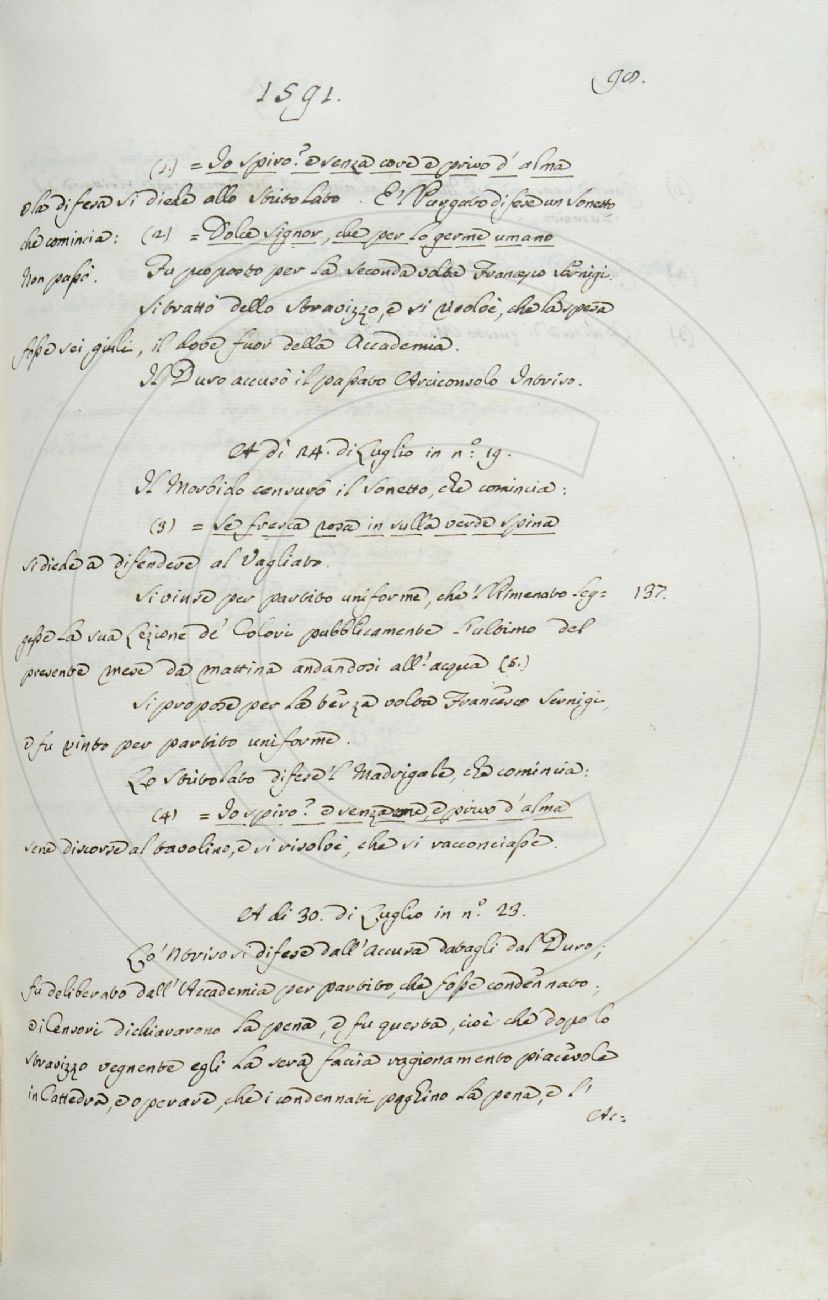 1591.
98.
(1.) = Io spiro? e senza core e privo d'alma
e la difesa si diede allo Stritolato. E 'l Purgato difese un Sonetto
che comincia: (2.) = Dolce signor, che per lo germe umano
Non passò. Fu proposto per la seconda volta Francesco Sernigi.
Si trattò dello stravizzo, e si risolvè, che la spesa
fosse sei giuli, il dove fuor della Accademia.
Il Duro accusò il passato Arciconsolo Intriso.
A dì 24. di Luglio in n.º 19.
Il Morbido censurò il Sonetto, che comincia:
(3) = Se fresca rosa in sulla verde spina
si diede a difendere al Vagliato.
Si vinse per partito uniforme, che 'l Rimenato leg= 137.
gesse la sua Lezione de' Colori pubblicamente l'ultimo del
presente mese da mattina andandosi all'acqua (5.)
Si propose per la terza volta Francesco Sernigi,
e fu vinto per partito uniforme.
Lo Stritolato difese 'l Madrigale, che comincia:
(4) = Io spiro? e senza core, e privo d'alma
sene discorse al tavolino, e si risolvè, che si racconciasse.
A di 30. di Luglio in n.º 23.
Lo 'Ntriso si difese dall'Accusa datagli dal Duro;
fu deliberato dall'Accademia per partito, che fosse condennato;
e i Censori dichiararono la pena, e fu questa, cioè che dopo lo
stravizzo vegnente egli la sera faccia ragionamento piacevole
in Cattedra, e operare, che i condennati paghino la pena, e l'
Ac=